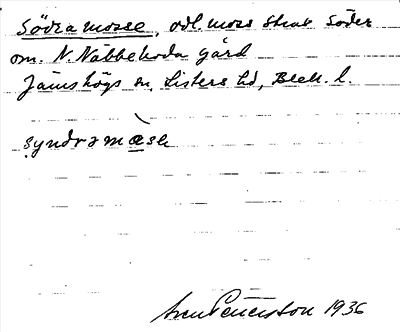 Södra mosse, odl. moss strax söder
om N. Näbbeboda gård
Jämshögs sn, Listers hd, Blek. l.
syndrəmåse
Sven Petersson 1936